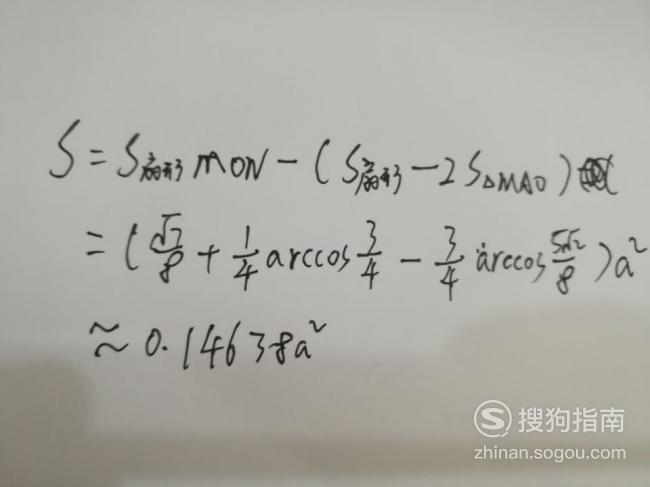 S = S扇形MON - (S扇形 - 2S△MAO)
= (√7/8 + 1/4 arccos 3/4 - 3/4 arccos 5√2/8)a²
≈ 0.14638a²
S 搜狗指南
zhinan.sogou.com